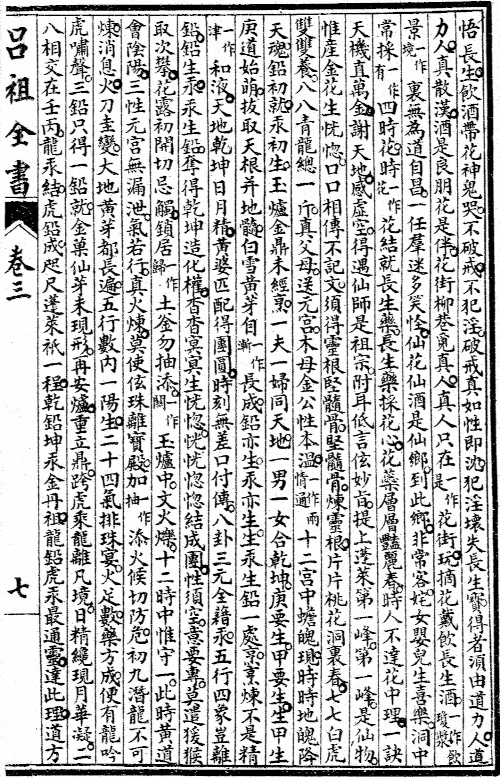 悟長生飲酒帶花神鬼哭不破戒不犯淫破戒真如性即沈犯淫壞失長生寶得者須由道力人道
力人真散漢酒是良朋花是伴花街柳巷覓真人真人只在一作是花街玩摘花戴飲長生酒一作飲瓊漿
景一作境裏無為道自昌一任羣迷多笑怪仙花仙酒是仙鄉到此鄉非常客姹女嬰兒生喜樂洞中
常採一作有四時花時一作花花結就長生藥長生藥採花心花藥層層豔麗春時人不達花中理一訣
天機直萬金謝天地感虛空得遇仙師是祖宗附耳低言玄妙旨提上蓬萊第一峰第一峰是仙物
惟產金花生恍惚口口相傳不記文須得靈根堅髓骨堅髓骨煉靈根片片桃花洞裏春七七白虎
雙雙養八八青龍總一斤真父母送元宮木母金公性本溫一作情通十二宮中蟾魄現時時地魄降
天魂鉛初就汞初生玉爐金鼎未經烹一夫一婦同天地一男一女合乾坤庚要生甲要生生甲生
庚道始萌拔取天根并地髓白雪黃芽自一作漸長成鉛亦生汞亦生生汞生鉛一處烹烹煉不是精
一作津和液天地乾坤日月精黃婆匹配得團圓時刻無差口付傳八卦三元全藉汞五行四象豈離
鉛鉛生汞汞生鉛奪得乾坤造化權杳杳冥冥生恍惚恍恍惚惚結成團性須空意要專莫遣猿猴
取次攀花露初開切忌觸鎖居一作歸土釜勿抽添一作閉玉爐中文火爍十二時中惟守一此時黃道
會陰陽三性元宮無漏泄氣若行真火煉莫使玄珠離寶殿加一作抽添火候切防危初九潛龍不可
煉消息火刀圭變大地黃芽都長遍五行數內一陽生二十四氣排珠宴火足數藥方成便有龍吟
虎嘯聲三鉛只得一鉛就金菓仙芽未現形再安爐重立鼎跨虎乘龍離凡境日精纔現月華凝二
八相交在壬丙龍汞結虎鉛成咫尺蓬萊祇一程乾鉛坤汞金丹祖龍鉛虎汞最通靈達此理道方
呂祖全書
卷三
七